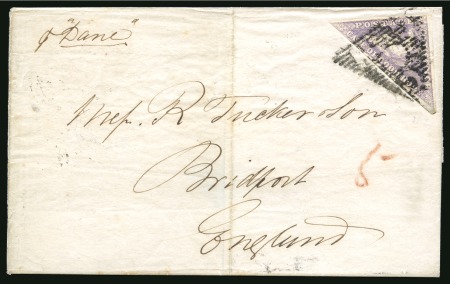 p "Dane"
POSTAGE
Messrs. R Tucker & Son
5
Bridport
England